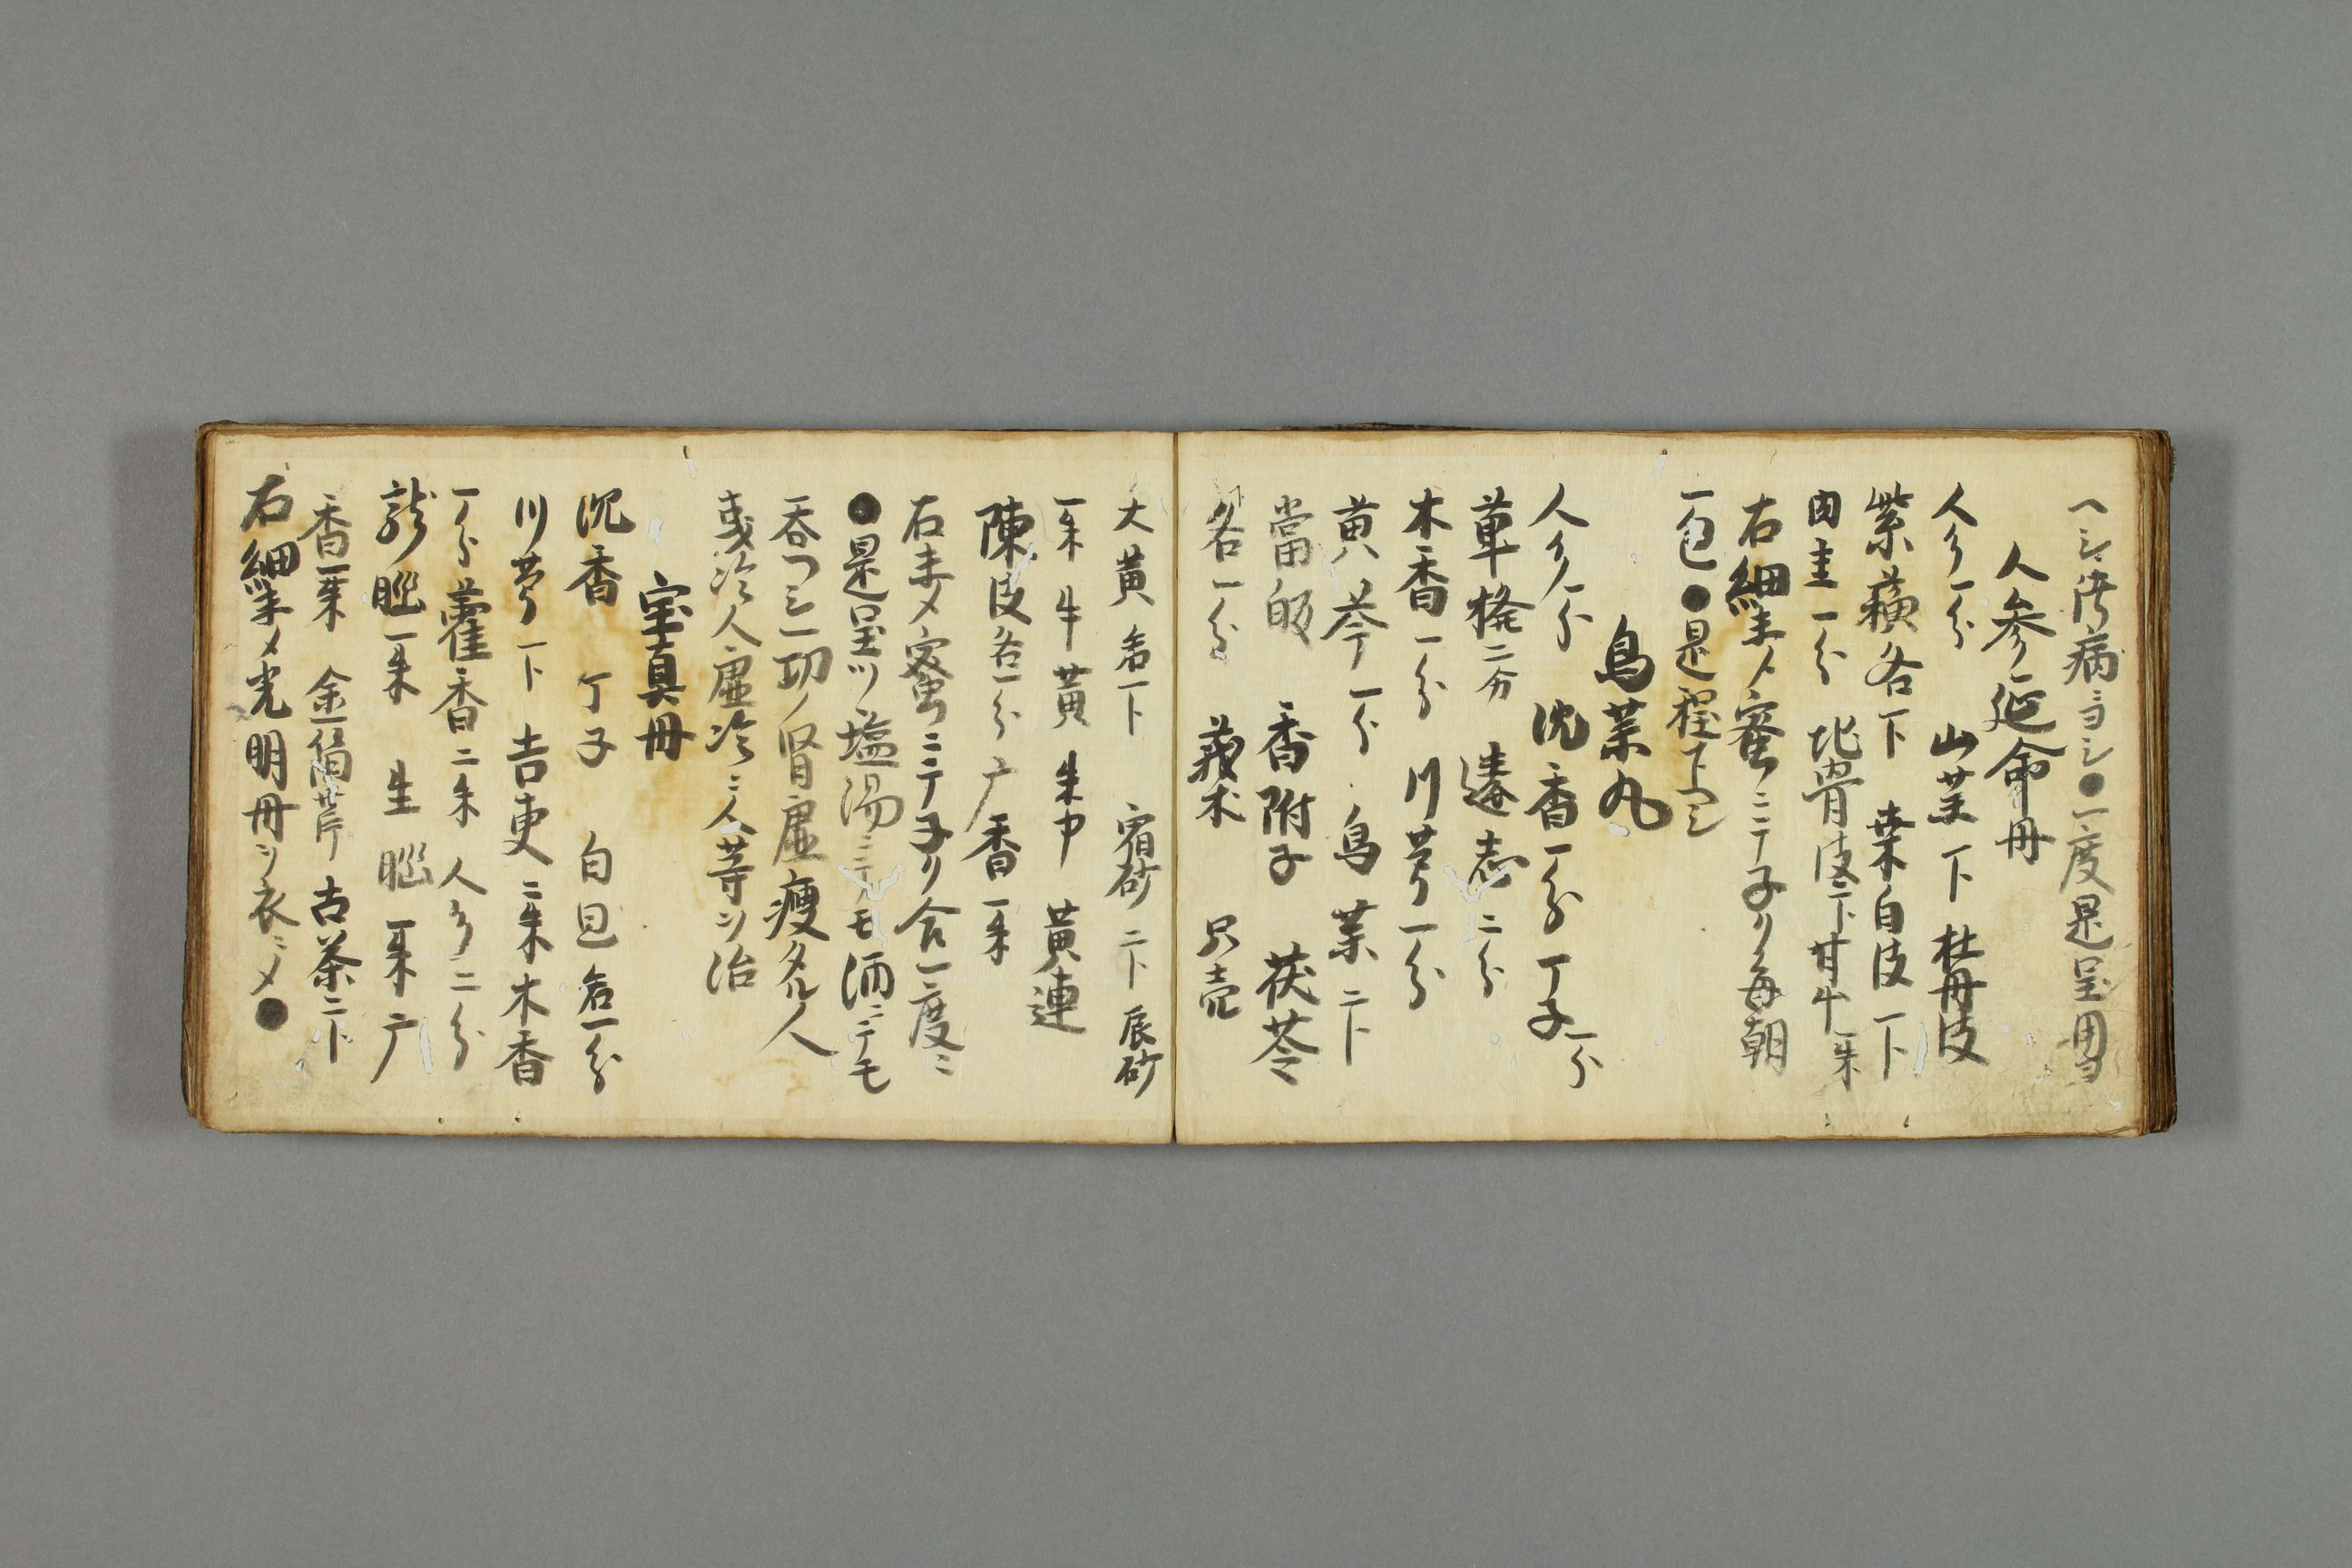 ヘシ諸病ニヨシ●一度是呈用ヨ
人参延命丹
人参一分 山薬一下 牡丹皮
紫蘓各一下 桒白皮一下
肉圭一分 地骨皮一下 甘牛一朱
右細末メ蜜ニテ子リ毎朝
一包●是程一下ヨシ
烏薬丸
人参一分 沈香一分 丁子一分
萆橃二分 遠志二分
木香一分 川芎一分
黄芩一分 烏薬二下
當皈 香附子 茯苓
各一分 莪朮 只壳
大黄各一下 宿砂二下 辰砂
一朱 牛黄 朱中 黄連
陳皮各一分 广香一朱
右末メ蜜ニテ子リ合一度ニ
●是呈ツヽ塩湯ニテモ酒ニテモ
呑ヘシ一切ノ腎虚瘦タル人
曳冷人虚冷ニ人等ヲ治
宝真丹
沈香 丁子 白旦各一分
川芎一下 吉更二朱 木香
一分 藿香二朱 人参二分
龍脳一朱 生脳一朱 广
香一朱 金箔廿片 古茶二下
右細末メ光明丹ヲ衣ニメ●